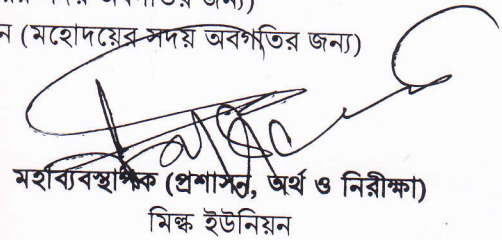 সদয় অবগতির জন্য)
ন (মহোদয়ের সদয় অবগতির জন্য)
মহাব্যবস্থাপক (প্রশাসন, অর্থ ও নিরীক্ষা)
মিল্ক ইউনিয়ন